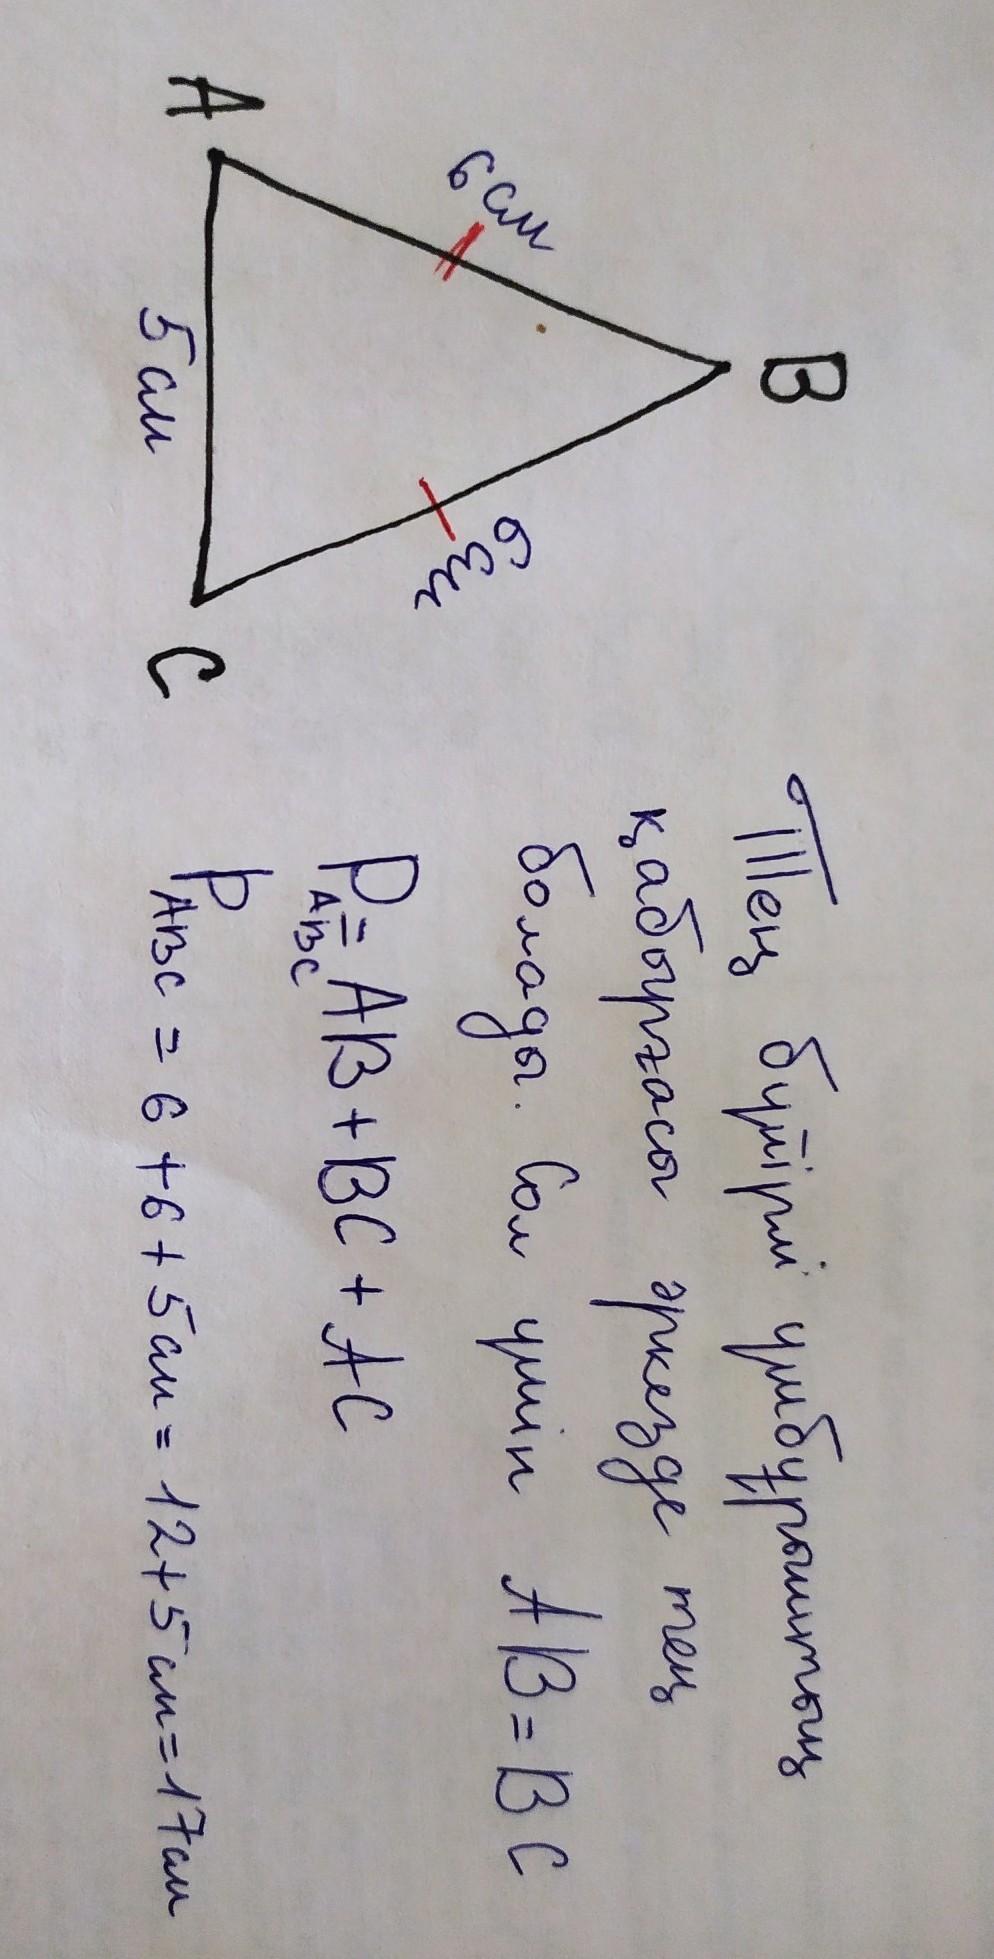 B
6 см
6 см
A
5 см
C
Тең бүйірлі үшбұрыштың
қабырғасы әркезде тең
болады. Сол үшін AB = BC
P ABC = AB + BC + AC
P ABC = 6 + 6 + 5 см = 12 + 5 см = 17 см